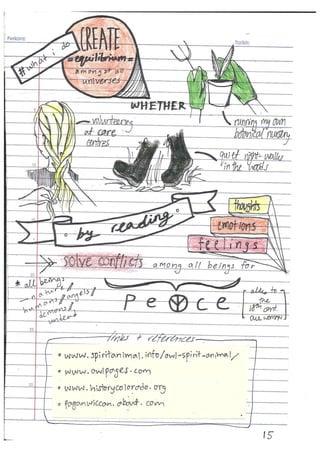 #what i do
CREATE
= equilibrium =
amongst all
universes
WHETHER
volunteering
at care
centres
running my own
botanical nursery
quiet night-walks
in the woods
by reading
thoughts
emotions
feelings
solve conflicts among all beings for
* all beings
- nature/
humans/angels/
demons/
undead
PeaCe
to
the
links + references
• www.spiritanimal.info/owl-spirit-animal/
• www.owlpages.com
• www.historycolorado.org
• paganwiccan.about.com
15